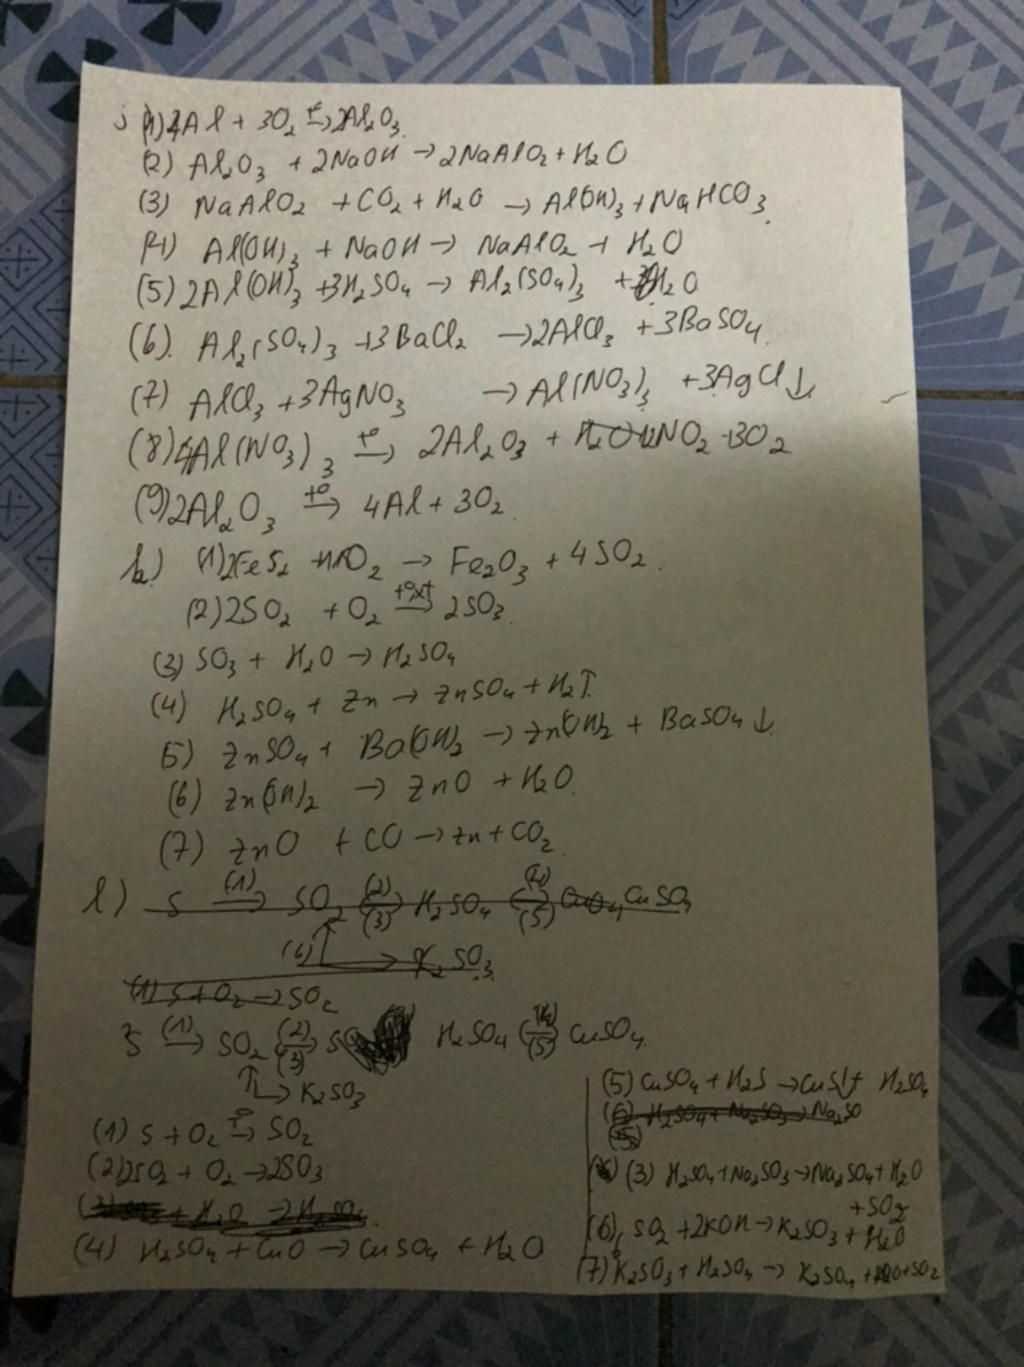 j (1) 4Al + 3O₂ t°→ 2Al₂O₃.
(2) Al₂O₃ + 2NaOH → 2NaAlO₂ + H₂O
(3) NaAlO₂ + CO₂ + H₂O → Al(OH)₃ + NaHCO₃.
(4) Al(OH)₃ + NaOH → NaAlO₂ + H₂O
(5) 2Al(OH)₃ + 3H₂SO₄ → Al₂(SO₄)₃ + H₂O
(6). Al₂(SO₄)₃ + 3BaCl₂ → 2AlCl₃ + 3BaSO₄.
(7) AlCl₃ + 3AgNO₃ → Al(NO₃)₃ + 3AgCl↓
(8) 4Al(NO₃)₃ t°→ 2Al₂O₃ + NO₂ + 3O₂
(9) 2Al₂O₃ t°→ 4Al + 3O₂.
k) (1) 2FeS₂ + O₂ → Fe₂O₃ + 4SO₂.
(2) 2SO₂ + O₂ t°xt→ 2SO₃.
(3) SO₃ + H₂O → H₂SO₄
(4) H₂SO₄ + Zn → ZnSO₄ + H₂↑.
5) ZnSO₄ + Ba(OH)₂ → Zn(OH)₂ + BaSO₄↓.
(6) Zn(OH)₂ → ZnO + H₂O.
(7) ZnO + CO → Zn + CO₂.
l) S (1)→ SO₂ (2)⇄(3) H₂SO₄ (4)⇄(5) CuSO₄
(6) → K₂SO₃.
(1) S + O₂ → SO₂
S (1)→ SO₂ (2)⇄(3) H₂SO₄ (4)⇄(5) CuSO₄.
↑→ K₂SO₃
(1) S + O₂ t°→ SO₂
(2) 2SO₂ + O₂ → 2SO₃
+ H₂O → H₂SO₄.
(4) H₂SO₄ + CuO → CuSO₄ + H₂O
(5) CuSO₄ + H₂S → CuS↓ + H₂SO₄
(6) H₂SO₄ + Na₂SO₃ → Na₂SO
(3) H₂SO₄ + Na₂SO₃ → Na₂SO₄ + H₂O
+ SO₂
(6) SO₂ + 2KOH → K₂SO₃ + H₂O
(7) K₂SO₃ + H₂SO₄ → K₂SO₄ + H₂O + SO₂